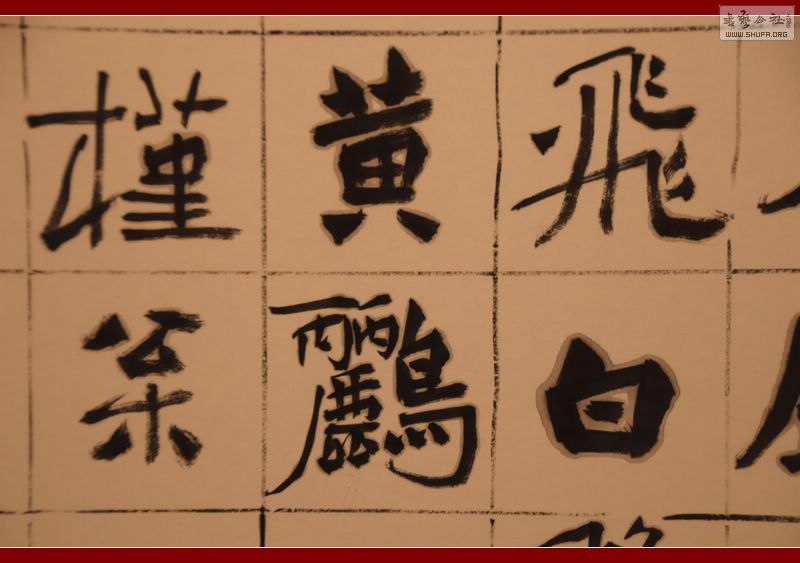 飛白
黄鸝
槿枀
書藝公社
WWW.SHUFA.ORG